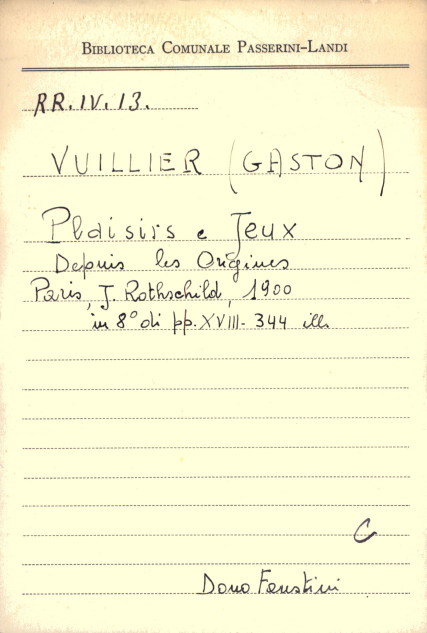 BIBLIOTECA COMUNALE PASSERINI-LANDI
RR.IV.13.
VUILLIER (GASTON)
Plaisirs e Jeux
Depuis les Origines
Paris, J. Rothschild, 1900
in 8° di pp. XVIII-344 ill.
C
Dono Faustini